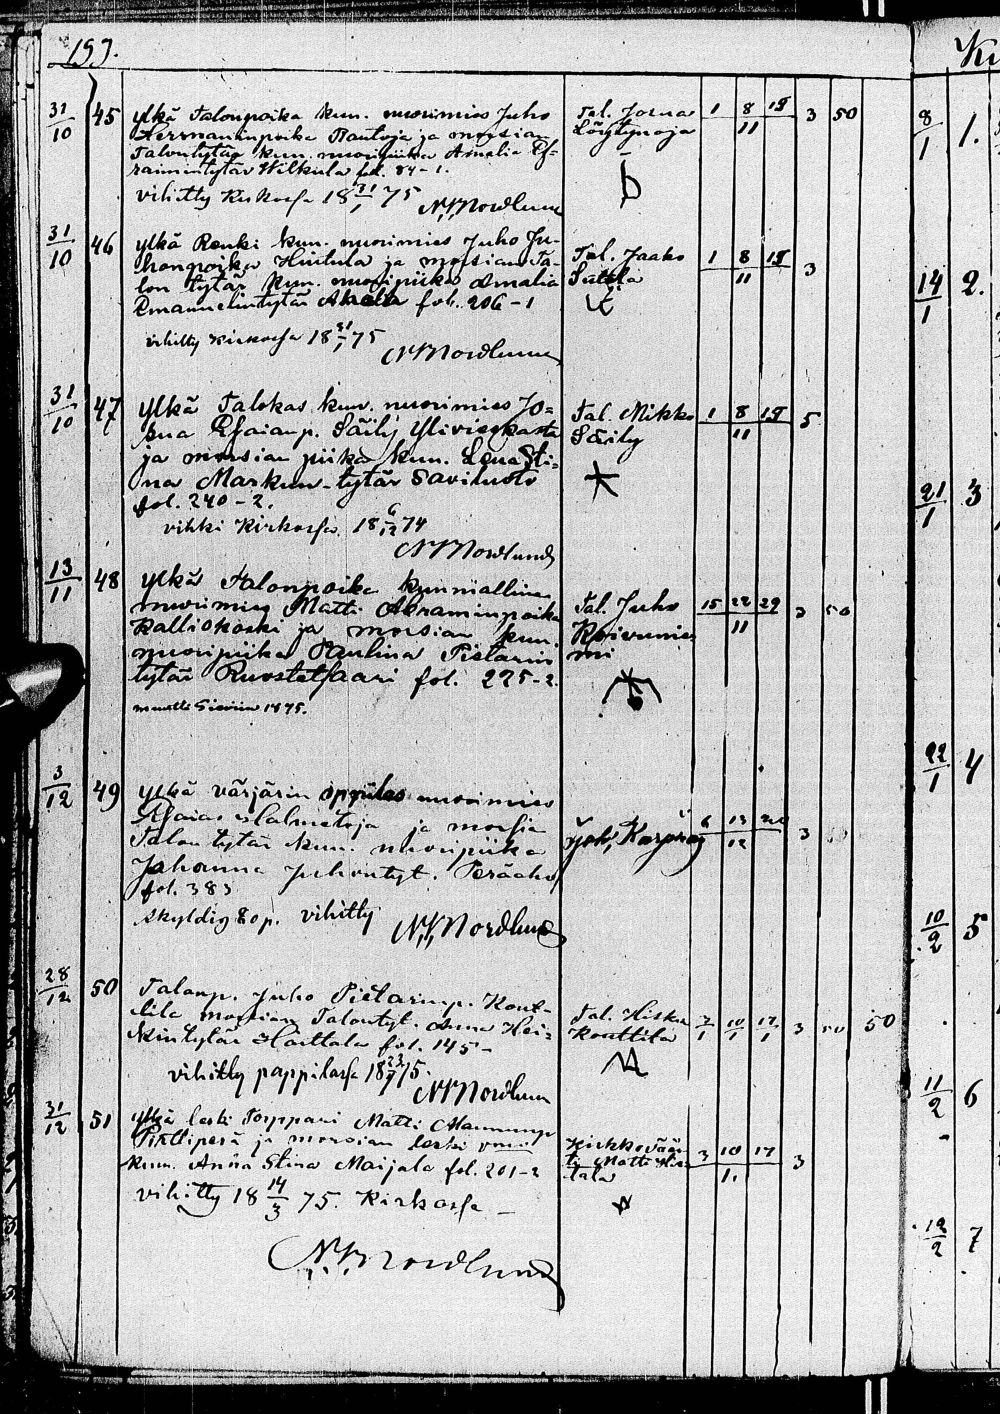 193.
31/10 45 ylkä Talonpoika kun. nuorimies Juho
Hermanninpoika Rautoja ja morsian
Talontytär kun. nuoripiika Amalia Ef=
raimintytär Wilkula fol. 84-1.
vihitty Kirkossa 18 31/1 75
N. Nordlund
Tal. Joena
Löytynoja
1 8 15 3 50
11
31/10 46 ylkä Renki kun. nuorimies Juho Ju-
honpoika Hintula ja morsian Ta-
lon tytär kun. nuoripiika Amalia
Emanuelintytär fol. 206-1
vihitty Kirkossa 18 31/1 75
N. Nordlund
Tal. Jaako
1 8 15 3
11
31/10 47 ylkä Talokas kun. nuorimies Jo=
sua Esaianp. Säily Ylivieskasta
ja morsian piika kun. Lena Sti=
na Markun-tytär Saviluoto
fol. 240-2.
vihki Kirkossa 18 6/12 74
N. Nordlund
Tal. Mikko
Säily
1 8 15 5
11
13/11 48 ylkä Talonpoika kunniallinen
nuorimies Matti Abraminpoika
Kalliokoski ja morsian kun.
nuoripiika Paulina Pietarin
tytär Ruostetsaari fol. 275-2.
muutti Sieviin 1875.
Tal. Juho
Koivunie
mi
15 22 29 3 50
11
3/12 49 ylkä värjärin oppilas nuorimies
Esaias ja morsia
Talon tytär kun. nuoripiika
Johanna Juhontyt. Peräaho
fol. 383
skyldig 80 p. vihitty
N. Nordlund
6 13 20 3
12
28/12 50 Talonp. Juho Pietarinp. Kout-
tila morsian Talontyt. Anna Hei=
kintytär Hiittala fol. 145-
vihitty pappilassa 18 23/1 75.
N. Nordlund
Tal. Hiska
Kouttila
3/1 10/1 17/1 3 50 50
31/12 51 ylkä leski Torppari Matti
Pirttiperä ja morsian leski
kun. Anna Stina Maijala fol. 201-2
vihitty 18 14/3 75. Kirkossa
N. Nordlund
Kirkkovää
ti Matti Hin
tala
3 10 17 3
1.
8/1 1.
14/1 2.
21/1 3
22/1 4
10/2 5
11/2 6
12/2 7